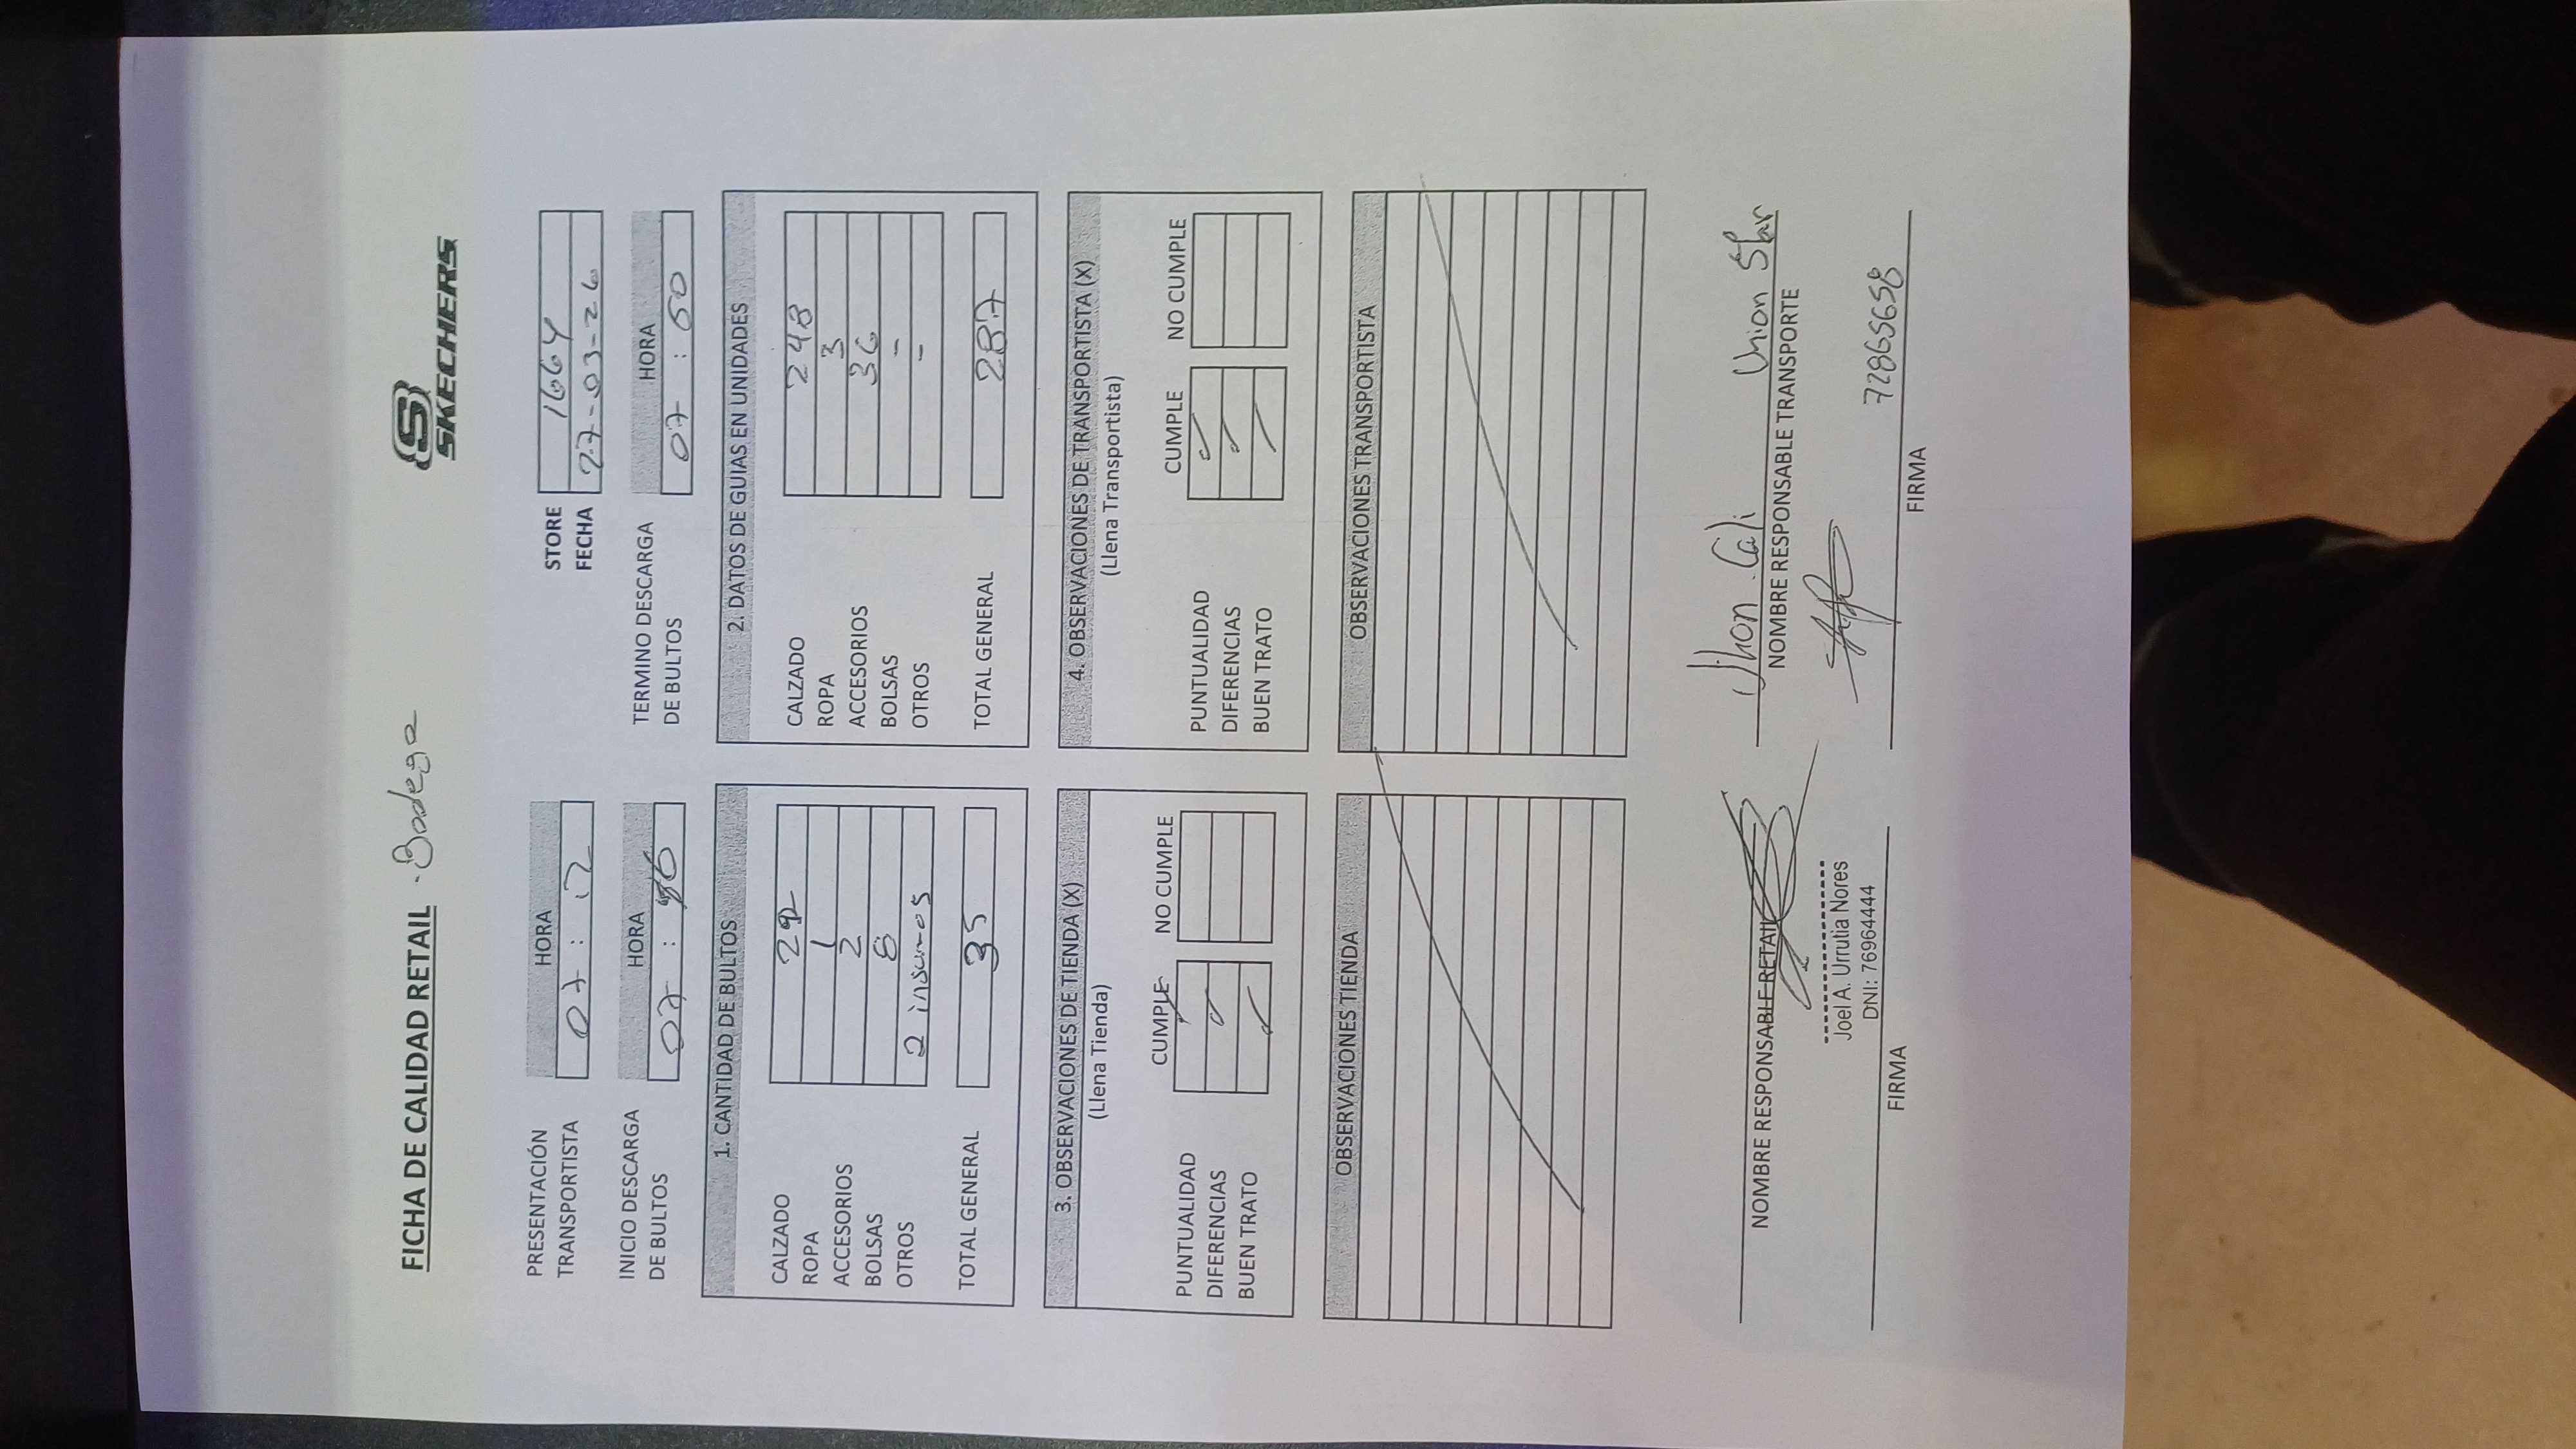 FICHA DE CALIDAD RETAIL - Bodega
SKECHERS
STORE 1664
FECHA 27-03-26
PRESENTACIÓN TRANSPORTISTA
HORA
07 : 12
INICIO DESCARGA DE BULTOS
HORA
07 :
TERMINO DESCARGA DE BULTOS
HORA
07 : 50
1. CANTIDAD DE BULTOS
CALZADO
ROPA 1
ACCESORIOS 2
BOLSAS
OTROS 2 insumos
TOTAL GENERAL 35
2. DATOS DE GUIAS EN UNIDADES
CALZADO 248
ROPA 3
ACCESORIOS 36
BOLSAS -
OTROS -
TOTAL GENERAL 287
3. OBSERVACIONES DE TIENDA (X)
(Llena Tienda)
CUMPLE NO CUMPLE
PUNTUALIDAD ✓
DIFERENCIAS ✓
BUEN TRATO ✓
4. OBSERVACIONES DE TRANSPORTISTA (X)
(Llena Transportista)
CUMPLE NO CUMPLE
PUNTUALIDAD ✓
DIFERENCIAS ✓
BUEN TRATO ✓
OBSERVACIONES TIENDA
OBSERVACIONES TRANSPORTISTA
NOMBRE RESPONSABLE RETAIL
Joel A. Urrutia Nores
DNI: 76964444
FIRMA
Jhon Cali Union Star
NOMBRE RESPONSABLE TRANSPORTE
72865658
FIRMA